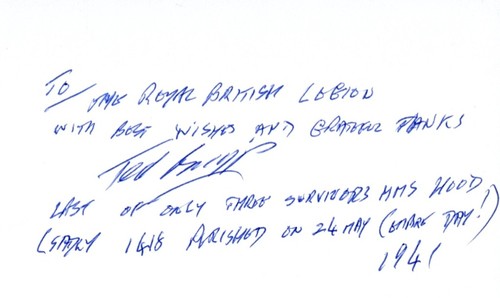 TO
THE ROYAL BRITISH LEGION
WITH BEST WISHES AND GRATEFUL THANKS
Ted Briggs
LAST OF ONLY THREE SURVIVORS HMS HOOD
(SADLY 1418 PERISHED ON 24 MAY (EMPIRE DAY!)
1941